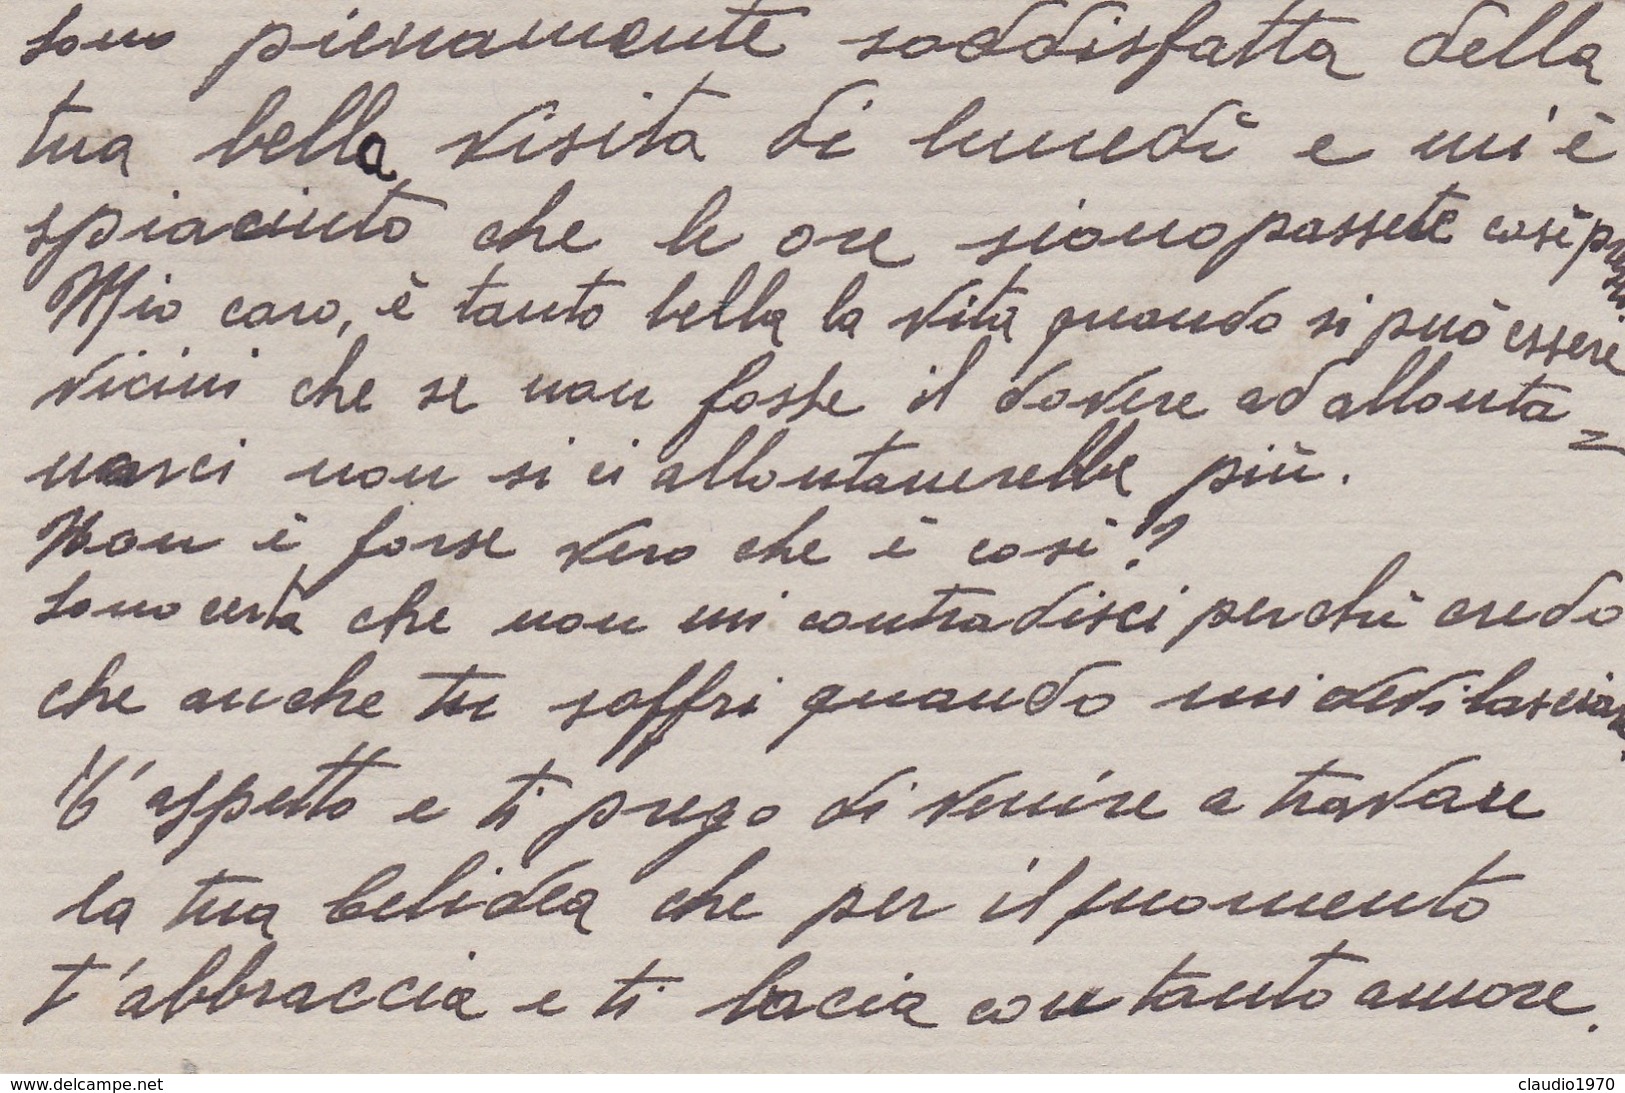 sono pienamente soddisfatta della
tua bella visita di lunedì e mi è
spiaciuto che le ore siano passate così presto.
Mio caro, è tanto bella la vita quando si può essere
vicini che se non fosse il dovere ad allonta=
narci non si ci allontanerebbe più.
Non è forse vero che è così?
Sono certa che non mi contradisci perchè credo
che anche tu soffri quando mi devi lasciare.
T'aspetto e ti prego di venire a trovare
la tua Belidea che per il momento
t'abbraccia e ti bacia con tanto amore.
www.delcampe.net
claudio1970